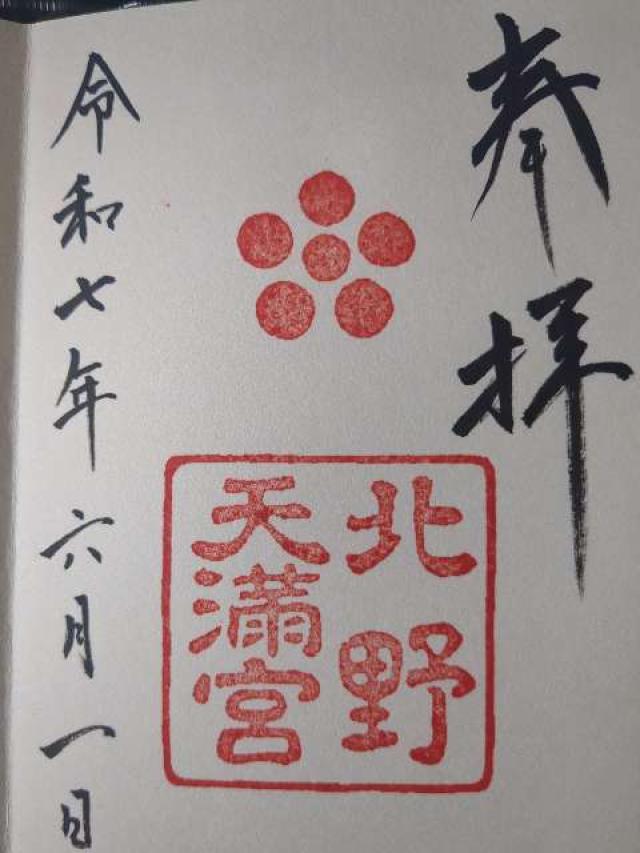 奉拝
北野
天満宮
令和七年六月一日